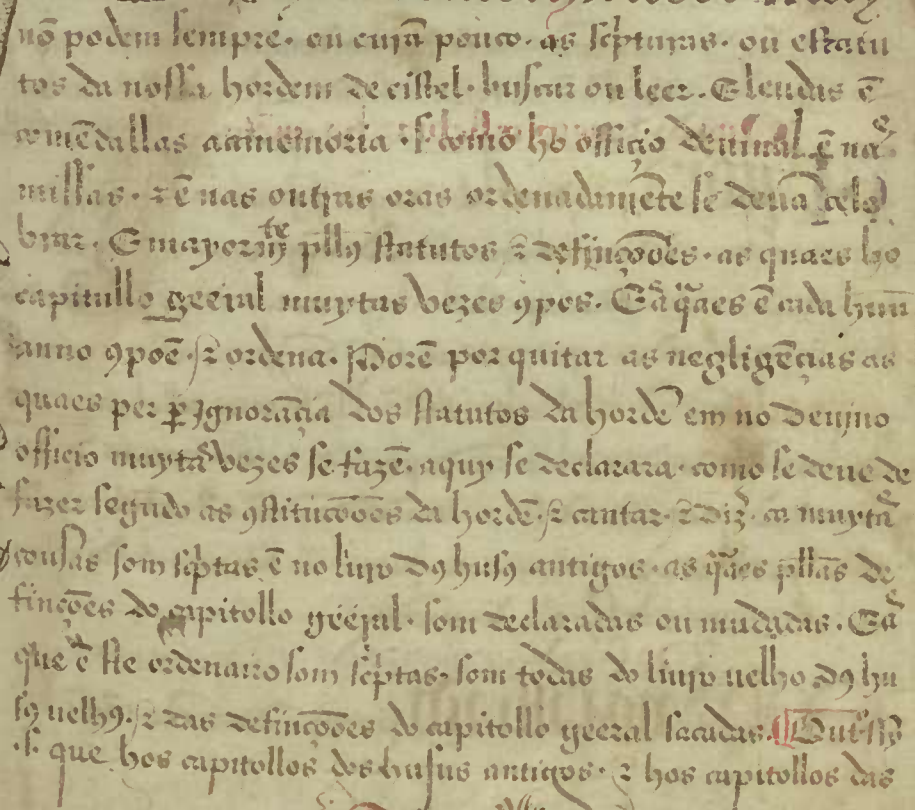 nõ podem sempre. ou curã pouco. as scpturas. ou estatu
tos da nossa hordem de cistel. buscar ou leer. E leudas ẽ
comẽdallas aa memoria. s. como ho officio deuinal. ẽ nas
missas. ⁊ ẽ nas outras oras ordenadamẽte se deuã cele
brar. E mayormẽte pllꝯ statutos ⁊ definçoões. as quaes ho
capitullo geeral muytas vezes ꝯpos. E as q̃aes ẽ cada huũ
anno ꝯpoẽ. ⁊ ordena. Porẽ por quitar as negligẽcias as
quaes per ꝑ Jgnorãcia dos statutos da hordẽ em no deuino
officio muytas vezes se fazẽ. aquy se declarara. como se deue de
fazer segũdo as ꝯstitucoões da hordẽ. ⁊ cantar. ⁊ diz̃. ca muytas
cousas som scp̃tas ẽ no liuro dꝯ husꝯ antigos. as q̃aes pllas de
finções do capitollo geeral. som declaradas ou mudadas. E as
que ẽ ste ordenairo som scp̃tas. som todas do liuro uelho dꝯ hu
sꝯ uelhꝯ. ⁊ das definçoões do capitollo geeral sacadas.
.s. que hos capitollos dos husus antigos. ⁊ hos capitollos das